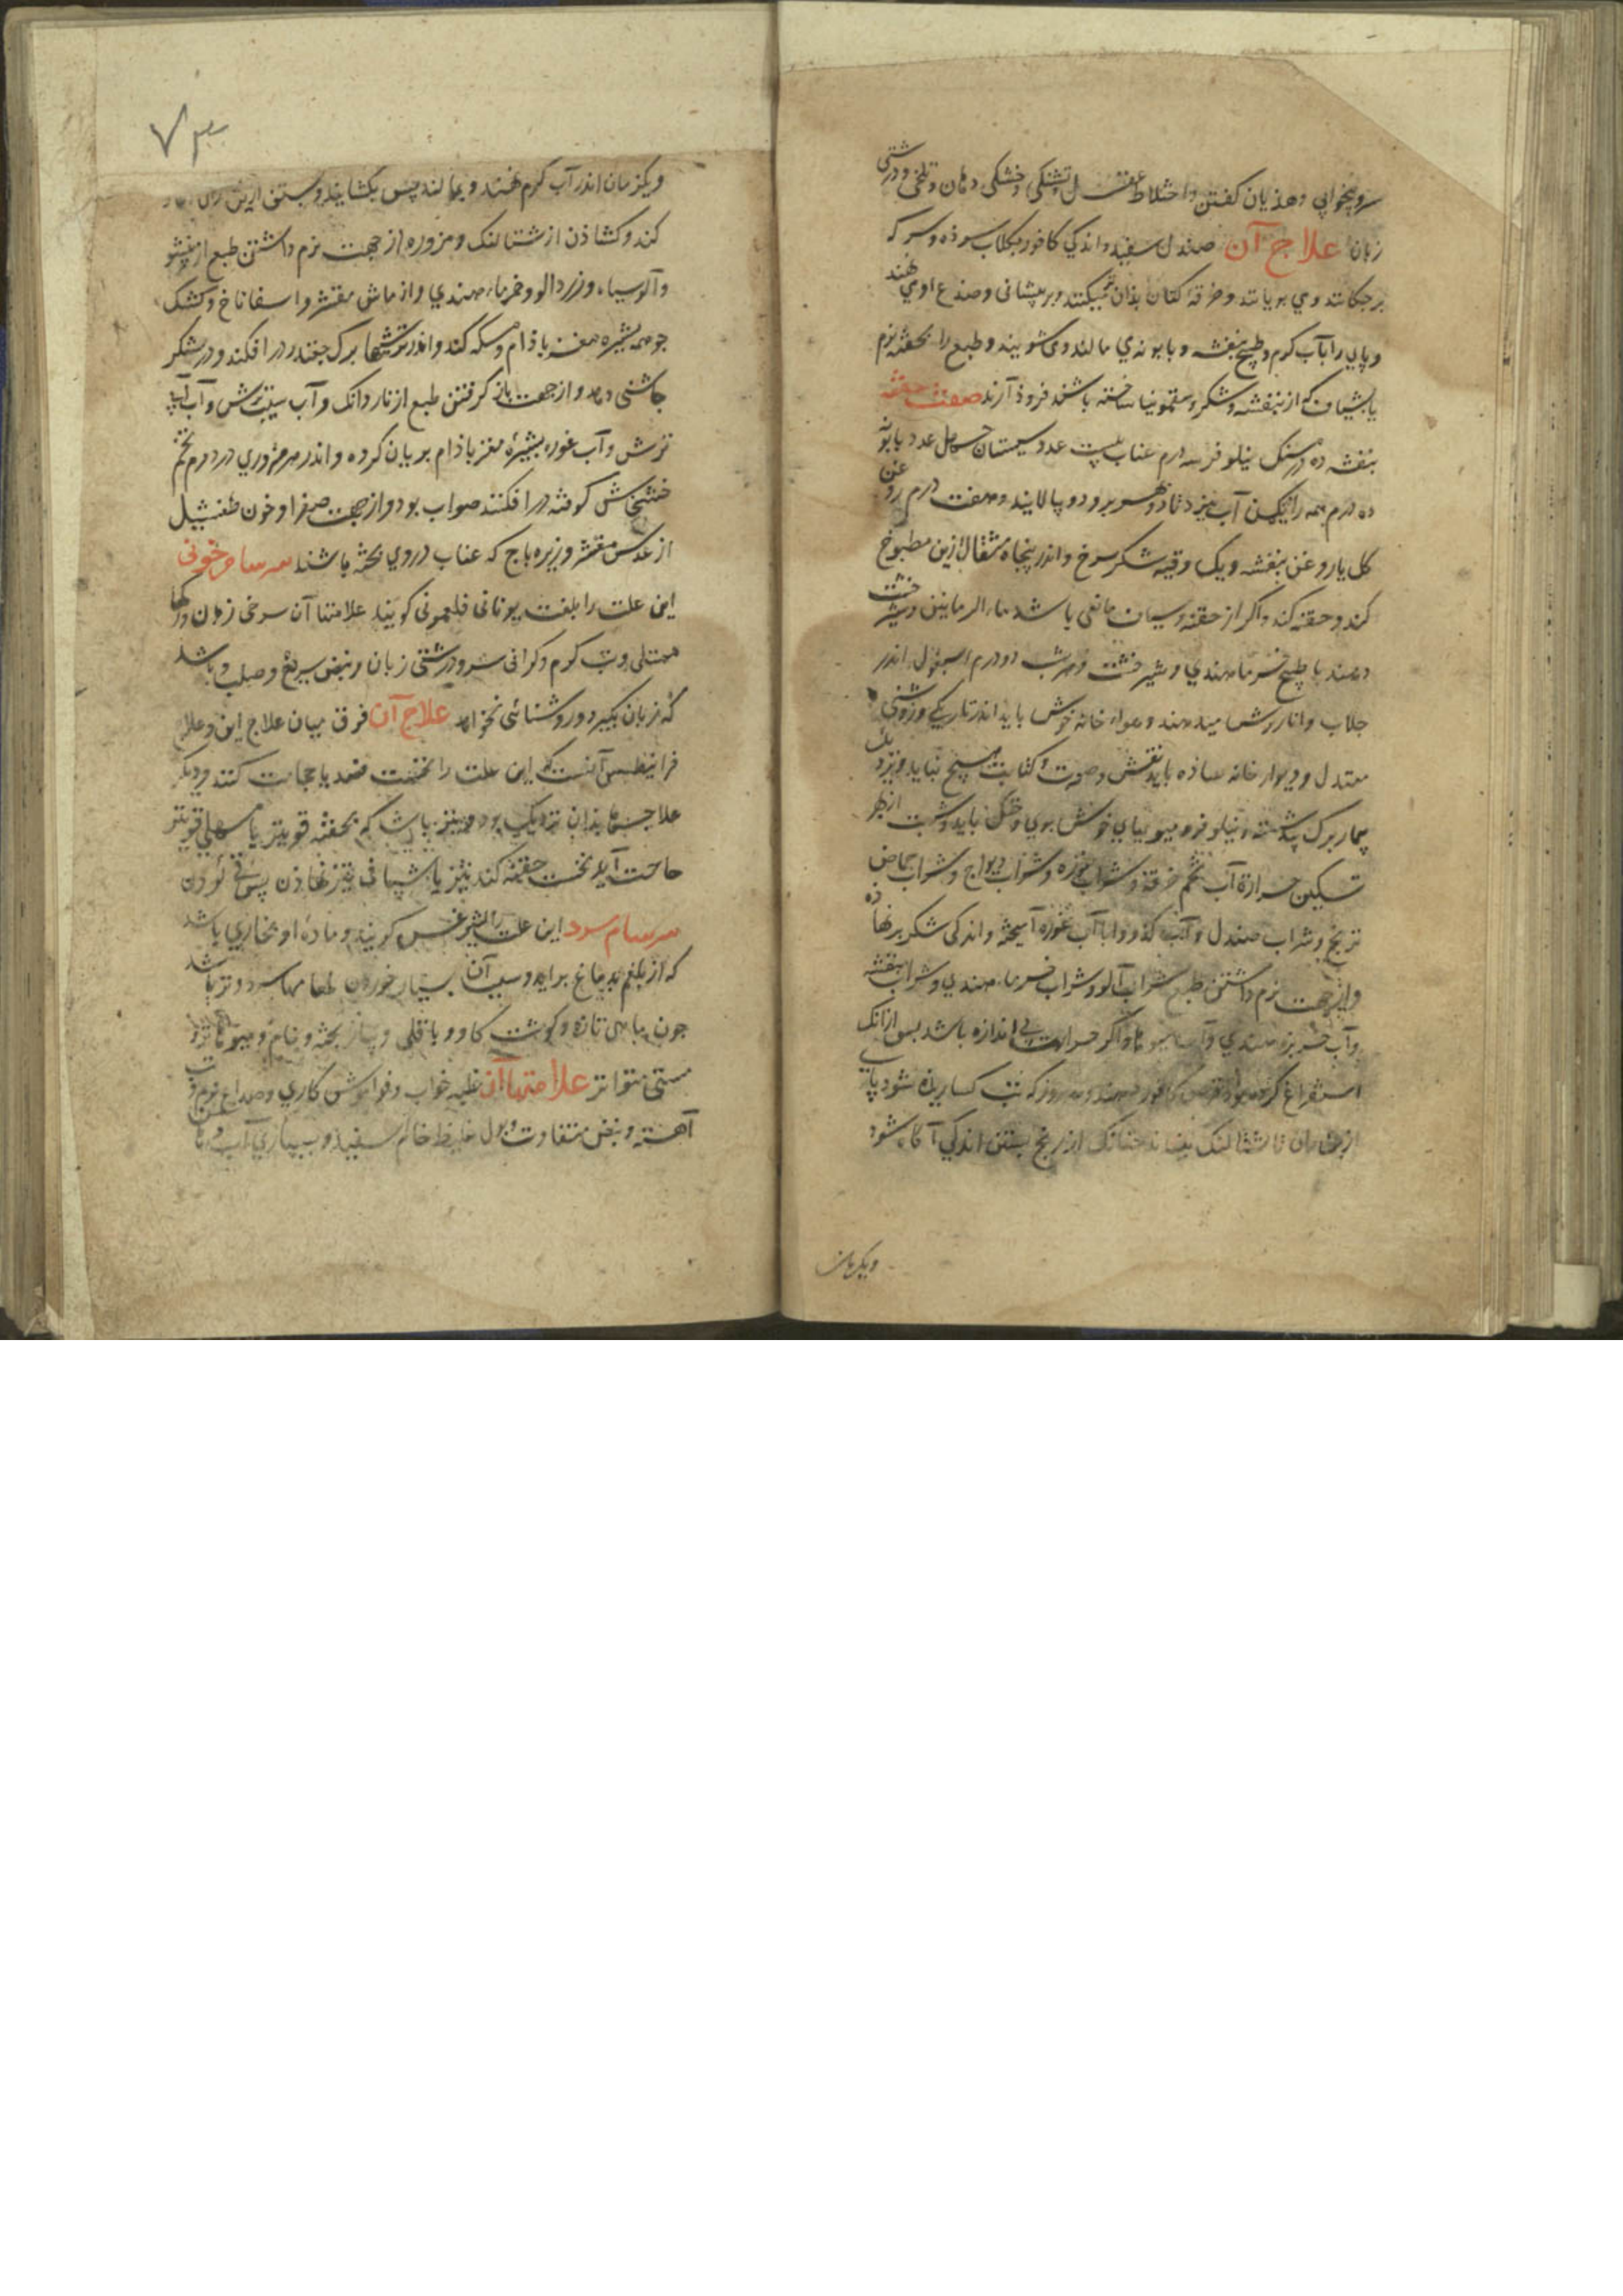 سر و بیخوابی و هذیان کفتن و اختلاط عقل و تشنکی و خشکی دهان و تلخی و درشتی
زبان علاج آن صندل سفید و اندکی کافور بکلاب سوده و سرکه
برچکانند و می بویانند و خرقه کتان بذان بر پیشانی و صدغ او می نهند
و پای را بآب کرم و طبیخ بنفشه و بابونه می مالند و می شویند و طبع را بحقنه نرم
یا بشیاف که از بنفشه و شکر و سقمونیا ساخته باشند فروذ آرند صفت حقنه
بنفشه ده درمسنک نیلوفر سه درم عناب بیست عدد سپستان چهل عدد بابونه
ده درم همه را آب بپزند تا دو بهر برود و بپالایند و هفت درم روغن
کل یا روغن بنفشه و یک وقیه شکر سرخ و اندر پنجاه مثقال ازین مطبوخ
کند و حقنه کند و اکر از حقنه و شیاف مانعی باشد ماء الرمانین و شیرخشت
دهند یا طبیخ خرماء هندی و شیرخشت و هر شب دو درم اسبغول اندر
جلاب و انار ترش میدهند و هواء خانه خوش باید اندر تاریکی و روشنی
معتدل و دیوار خانه ساده باید نقش و صورت و کتابت هیچ نباید و نزدیک
بیمار برک بید و نیلوفر و میوهای خوش بوی و خنک باید و شربت از بهر
تسکین حرارة آب تخم خرفه و شراب غوره و شراب ریواج و شراب حماض
ترنج و شراب صندل و آب کدو و آب غوره آمیخته و اندکی شکر برنهاده
و از جهت نرم داشتن طبع شراب آلو و شراب خرماء هندی و شراب بنفشه
و آب خربزه هندی و آب میوها و اکر حرارت بی اندازه باشد پس از آنک
استفراغ کرده بود قرص کافور دهند و هر روز که تب کسارنده شود پای
از بن ران تا شتالنک ببندند چنانک از رنج بستن اندکی آکاه شود
ویکزمان
۷۳
ویکزمان اندر آب کرم نهند و بمالند پس بکشایند و بستن از بن ران
کند و کشاذن از شتالنک و مزوره از جهت نرم داشتن طبع از بنفشه
و آلو سیاه و زردآلو و خرماء هندی و از ماش مقشر و اسفاناخ و کشک
جو همه بشیره مغز باذام و مسکه کند و اندر ترشیها برک چغندر در افکند و در شکر
چاشنی دهد و از جهت باز کرفتن طبع از ناردانک و آب سیب ترش و آب آبی
ترش و آب غوره بشیرهٔ مغز باذام بریان کرده و اندر هر مزوری دو درم تخم
خشخاش کوفته در افکنند صواب بود و از جهت صفرا و خون طفشیل
از عدس مقشر و زیره باج که عناب در وی پخته باشند سرسام خونی
این علت را بلغت یونانی فلغمونی کویند علامتها آن سرخی زبان و رکها
ممتلی و تب کرم و کرانی سر و درشتی زبان و نبض سریع و صلب باشد
که زبان بکیرد و روشنائی نخواهد علاج آن فرق میان علاج این و علاج
فرانیطس آنست که این علت را نخست فصد یا حجامت کنند و دیکر
علاجها بذان نزدیک بود و نیز باشد که بحقنه قویتر یا مسهلی قویتر
حاجت آید نخست حقنه کند نیز یا شیافی تیز نهاذن
سرسام سرد این علت را لیثرغس کویند و مادهٔ او بخاری باشد
که از بلغم بدماغ برآید و سبب آن بسیار خوردن طعامها سرد و تر باشد
چون ماهی تازه و کوشت کاو و باقلی و پیاز پخته و خام و میوها تر و
مستی متواتر علامتها آن غلبه خواب و فراموش کاری و صداع نرم و تب
آهسته و نبض متفاوت و بول غلیظ خام سفید و بسیاری آب